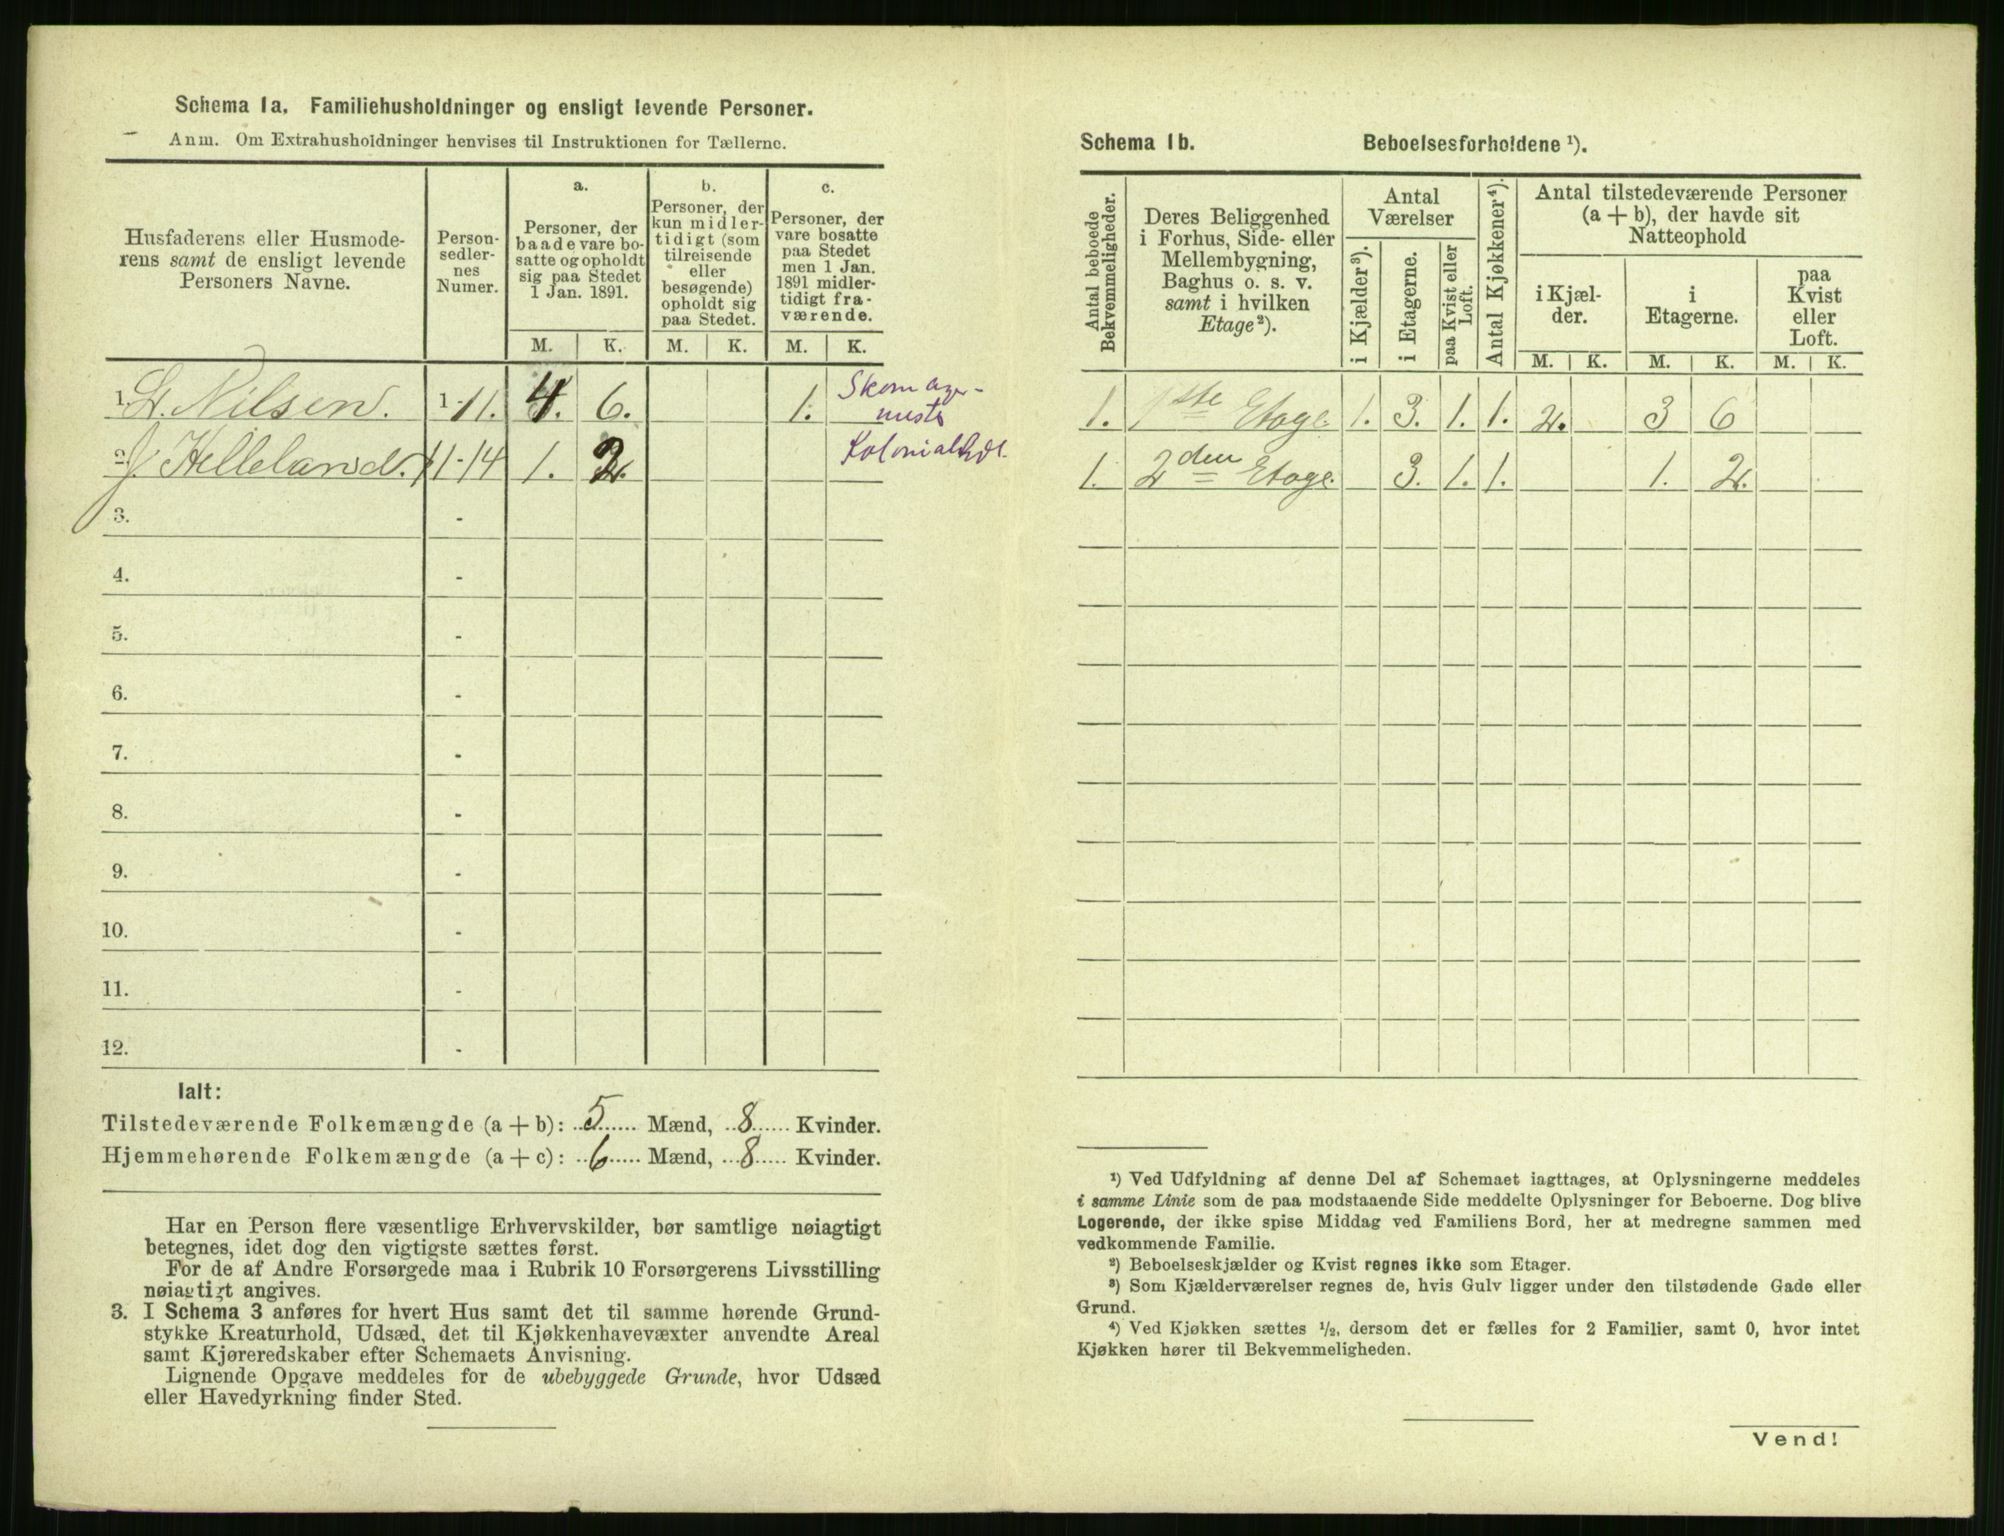 Schema 1a. Familiehusholdninger og ensligt levende Personer.
Anm. Om Extrahusholdninger henvises til Instruktionen for Tællerne.
Husfaderens eller Husmode-
rens samt de ensligt levende
Personers Navne.
Person-
sedler-
nes
Numer.
a.
Personer, der
baade vare bo-
satte og opholdt
sig paa Stedet
1 Jan. 1891.
b.
Personer, der
kun midler-
tidigt (som
tilreisende
eller
besøgende)
opholdt sig
paa Stedet.
c.
Personer, der
vare bosatte
paa Stedet
men 1 Jan.
1891 midler-
tidigt fra-
værende.
M. K. M. K. M. K.
1. L. Nilsen. 1-11. 4. 6. 1. Skomager-
mester
2. J. Helleland. 11-14 1. 2. Kolonialhdl.
3. -
4. -
5. -
6. -
7. -
8. -
9. -
10. -
11. -
12. -
Ialt:
Tilstedeværende Folkemængde (a + b): 5 Mænd, 8 Kvinder.
Hjemmehørende Folkemængde (a + c): 6 Mænd, 8 Kvinder.
Har en Person flere væsentlige Erhvervskilder, bør samtlige nøiagtigt
betegnes, idet dog den vigtigste sættes først.
For de af Andre Forsørgede maa i Rubrik 10 Forsørgerens Livsstilling
nøiagtigt angives.
3. I Schema 3 anføres for hvert Hus samt det til samme hørende Grund-
stykke Kreaturhold, Udsæd, det til Kjøkkenhavevæxter anvendte Areal
samt Kjøreredskaber efter Schemaets Anvisning.
Lignende Opgave meddeles for de ubebyggede Grunde, hvor Udsæd
eller Havedyrkning finder Sted.
Schema 1b. Beboelsesforholdene ¹).
Antal beboede
Bekvemmeligheder.
Deres Beliggenhed
i Forhus, Side- eller
Mellembygning,
Baghus o. s. v.
samt i hvilken
Etage²).
Antal
Værelser
i Kjælder³).
i Etagerne.
paa Kvist eller
Loft.
Antal Kjøkkener⁴).
Antal tilstedeværende Personer
(a + b), der havde sit
Natteophold
i Kjæl-
der.
i
Etagerne.
paa
Kvist
eller
Loft.
M. K. M. K. M. K.
1. 1ste Etage. 1. 3. 1. 1. 2. 3 6
1. 2den Etage. 3. 1. 1. 1. 2.
¹) Ved Udfyldning af denne Del af Schemaet iagttages, at Oplysningerne meddeles
i samme Linie som de paa modstaaende Side meddelte Oplysninger for Beboerne. Dog blive
Logerende, der ikke spise Middag ved Familiens Bord, her at medregne sammen med
vedkommende Familie.
²) Beboelseskjælder og Kvist regnes ikke som Etager.
³) Som Kjælderværelser regnes de, hvis Gulv ligger under den tilstødende Gade eller
Grund.
⁴) Ved Kjøkken sættes ½, dersom det er fælles for 2 Familier, samt 0, hvor intet
Kjøkken hører til Bekvemmeligheden.
Vend!